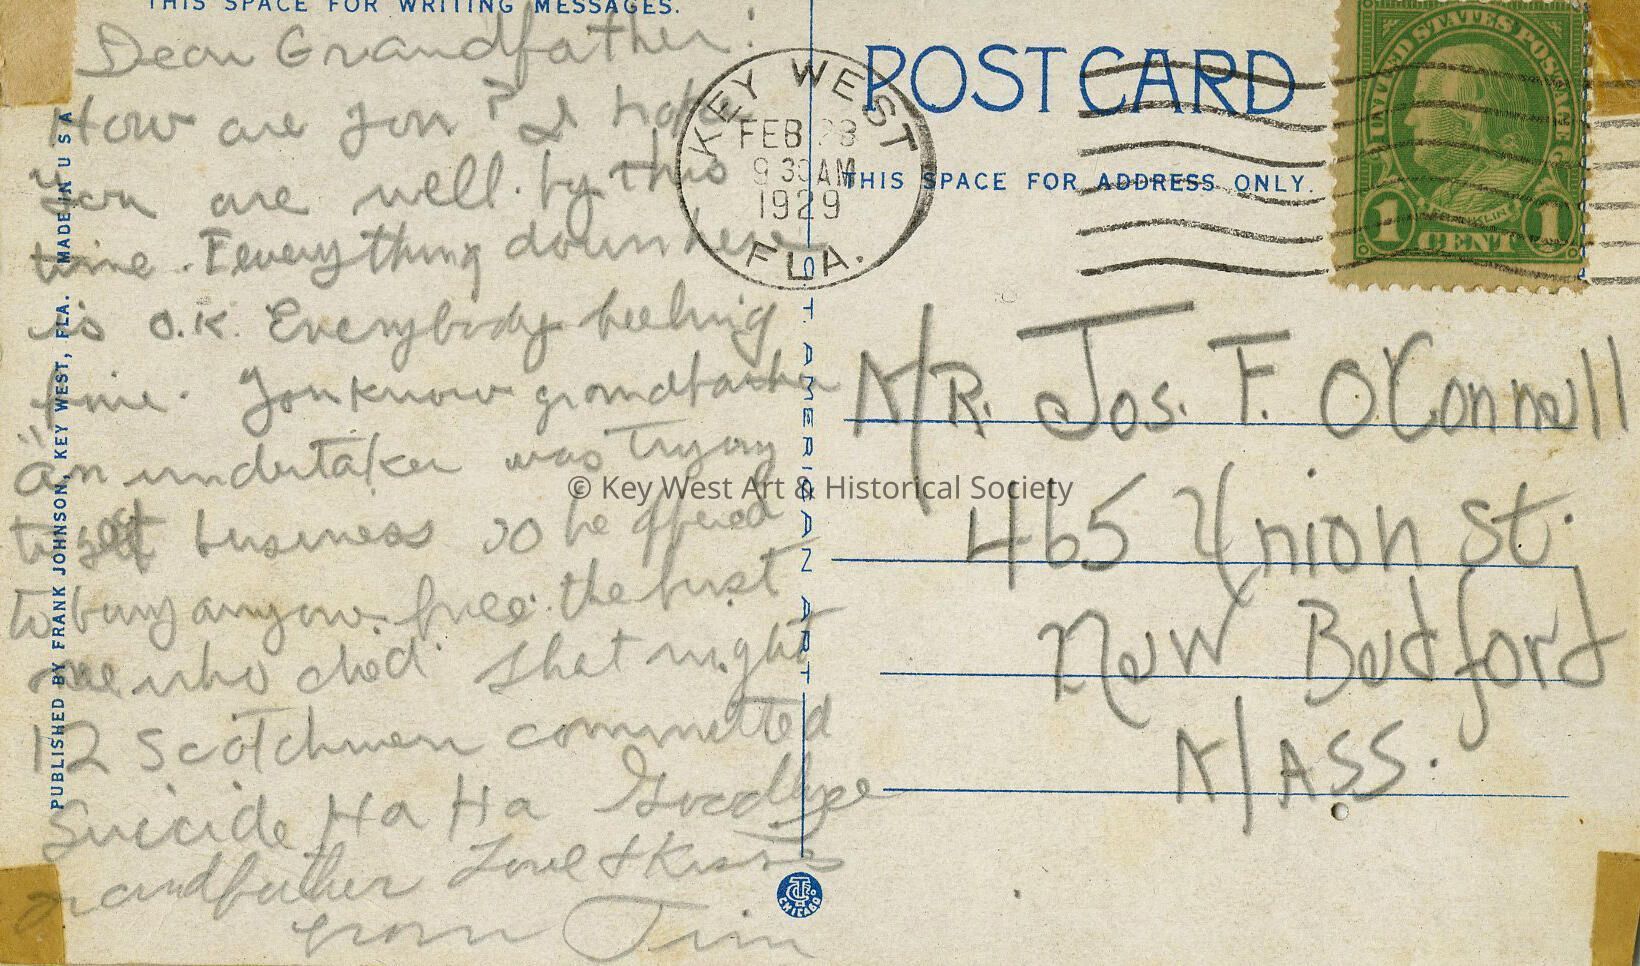 THIS SPACE FOR WRITING MESSAGES.
Dear Grandfather:
How are you? I hope
you are well by this
time. Everything down here
is O.K. Everybody feeling
fine. You know grandfather
an undertaker was trying
to get business so he offered
to bury anyone free. the first
one who died that night
12 Scotchmen committed
Suicide Ha Ha Goodbye
grandfather Love & Kisses
from Jim
PUBLISHED BY FRANK JOHNSON, KEY WEST, FLA. MADE IN U S A
C. T. AMERICAN ART
CHICAGO
KEY WEST
FEB 23
9 30 AM
1929
FLA.
POST CARD
THIS SPACE FOR ADDRESS ONLY.
UNITED STATES POSTAGE
FRANKLIN
1 CENT 1
MR. Jos. F. O'Connell
465 Union St.
New Bedford
MASS.
© Key West Art & Historical Society